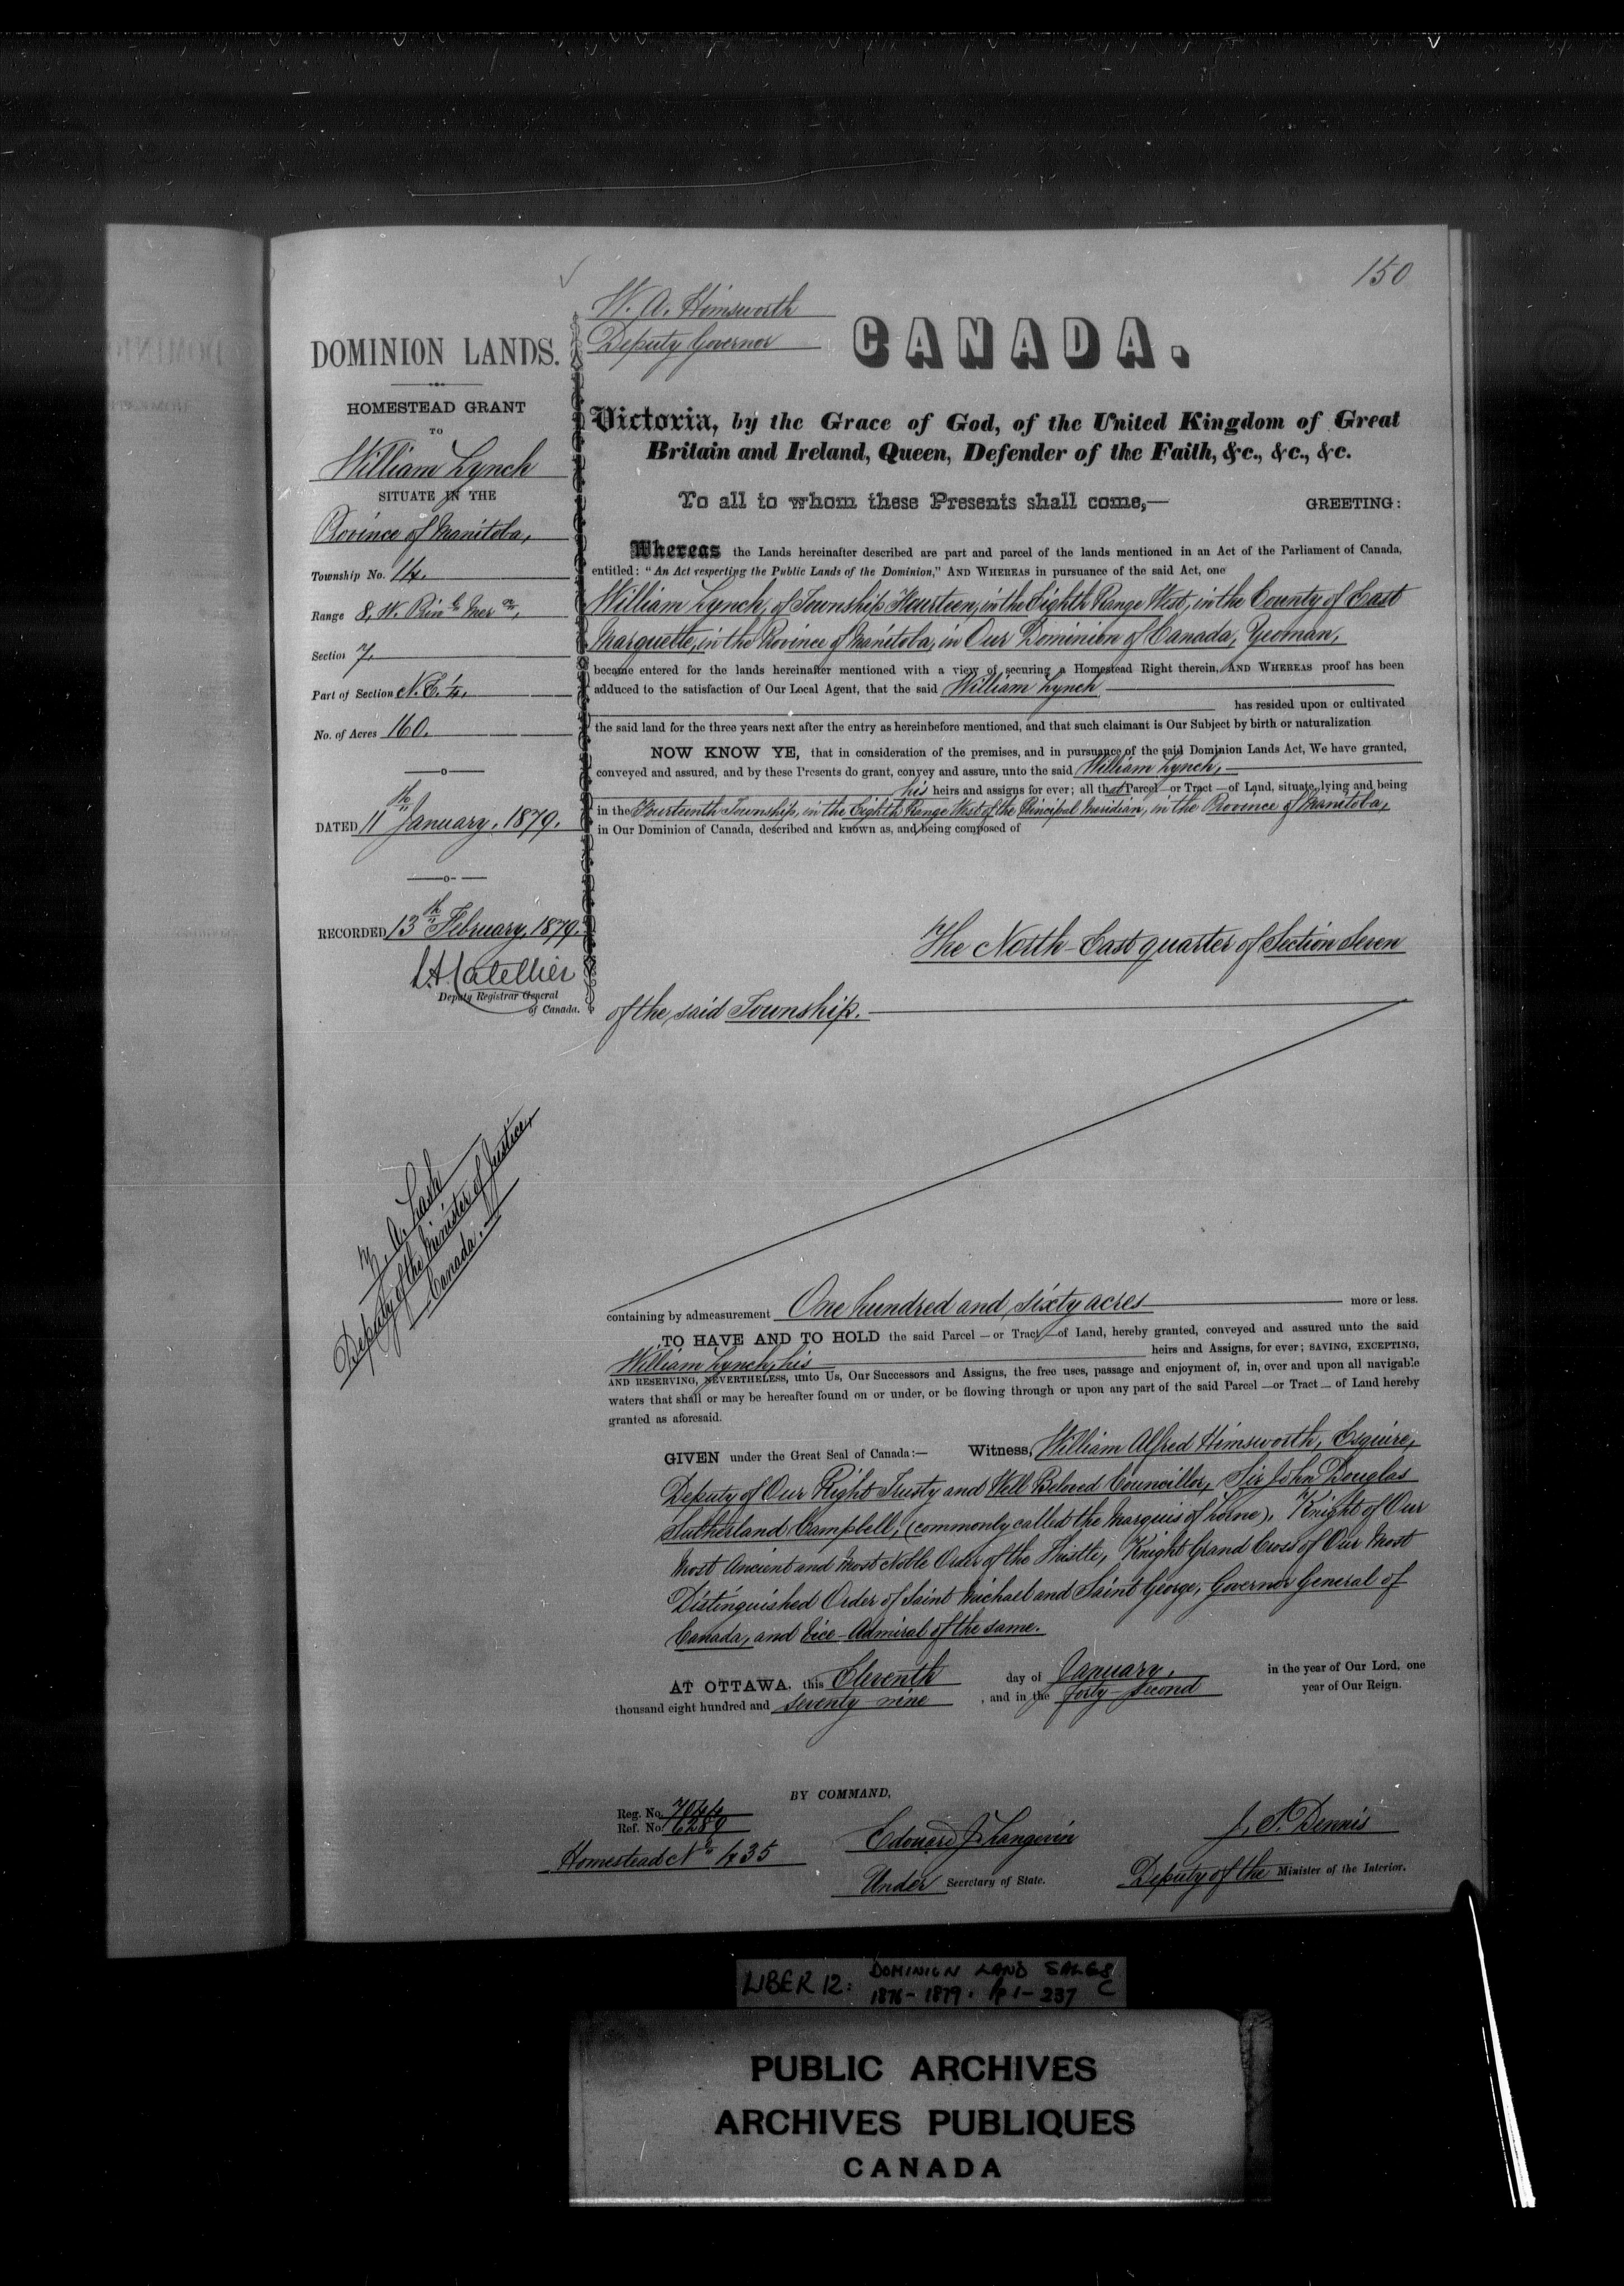 150
W. A. Himsworth
Deputy Governor
CANADA.
DOMINION LANDS.
HOMESTEAD GRANT
TO
William Lynch
SITUATE IN THE
Province of Manitoba,
Township No. 14.
Range 8, W. Prinl Mern,
Section 7,
Part of Section N.E. 1/4,
No. of Acres 160.
DATED 11th January, 1879.
RECORDED 13th February, 1879.
L.A. Catellier
Deputy Registrar General
of Canada.
Z. A. Lash
Deputy of the Minister of Justice,
Canada.
Victoria, by the Grace of God, of the United Kingdom of Great
Britain and Ireland, Queen, Defender of the Faith, &c., &c., &c.
To all to whom these Presents shall come,— GREETING:
Whereas the Lands hereinafter described are part and parcel of the lands mentioned in an Act of the Parliament of Canada,
entitled: "An Act respecting the Public Lands of the Dominion," AND WHEREAS in pursuance of the said Act, one
William Lynch, of Township Fourteen, in the Eighth Range West, in the County of East
Marquette, in the Province of Manitoba, in Our Dominion of Canada, Yeoman,
became entered for the lands hereinafter mentioned with a view of securing a Homestead Right therein, AND WHEREAS proof has been
adduced to the satisfaction of Our Local Agent, that the said William Lynch
has resided upon or cultivated
the said land for the three years next after the entry as hereinbefore mentioned, and that such claimant is Our Subject by birth or naturalization
NOW KNOW YE, that in consideration of the premises, and in pursuance of the said Dominion Lands Act, We have granted,
conveyed and assured, and by these Presents do grant, convey and assure, unto the said William Lynch,
his heirs and assigns for ever; all that Parcel—or Tract—of Land, situate, lying and being
in the Fourteenth Township, in the Eighth Range West of the Principal Meridian, in the Province of Manitoba,
in Our Dominion of Canada, described and known as, and being composed of
The North-East quarter of Section Seven
of the said Township.
containing by admeasurement One hundred and sixty acres more or less.
TO HAVE AND TO HOLD the said Parcel—or Tract—of Land, hereby granted, conveyed and assured unto the said
William Lynch, his heirs and Assigns, for ever; SAVING, EXCEPTING,
AND RESERVING, NEVERTHELESS, unto Us, Our Successors and Assigns, the free uses, passage and enjoyment of, in, over and upon all navigable
waters that shall or may be hereafter found on or under, or be flowing through or upon any part of the said Parcel—or Tract—of Land hereby
granted as aforesaid.
GIVEN under the Great Seal of Canada:— Witness, William Alfred Himsworth, Esquire,
Deputy of Our Right Trusty and Well Beloved Councillor, Sir John Douglas
Sutherland Campbell, (commonly called the Marquis of Lorne), Knight of Our
Most Ancient and Most Noble Order of the Thistle, Knight Grand Cross of Our Most
Distinguished Order of Saint Michael and Saint George, Governor General of
Canada, and Vice-Admiral of the same.
AT OTTAWA, this Eleventh day of January, in the year of Our Lord, one
thousand eight hundred and seventy-nine, and in the forty-second year of Our Reign.
BY COMMAND,
Reg. No. 7044
Ref. No. 16289
Homestead No 435
Edouard J. Langevin
Under Secretary of State.
J. S. Dennis
Deputy of the Minister of the Interior.
LIBER 12: DOMINION LAND SALES
1876-1879. pp 1-237 C
PUBLIC ARCHIVES
ARCHIVES PUBLIQUES
CANADA